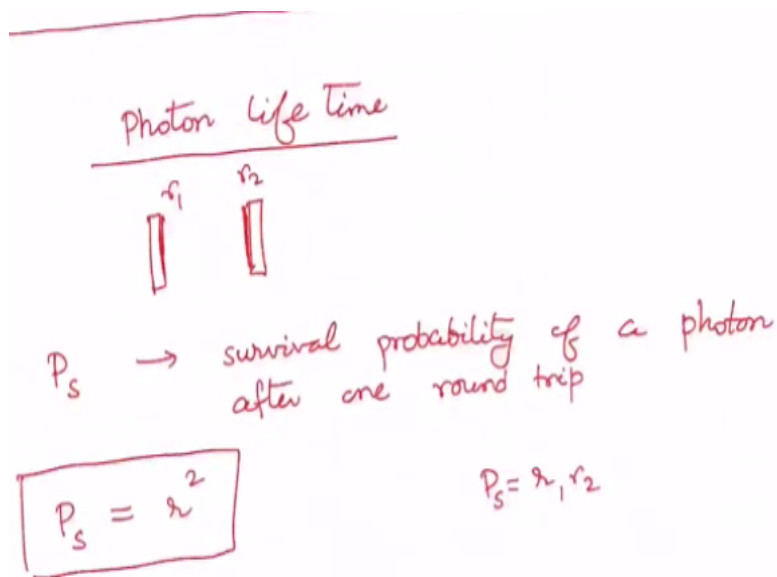 Photon Life Time
r₁ r₂
P_s → survival probability of a photon
after one round trip
P_s = r²
P_s = r₁ r₂